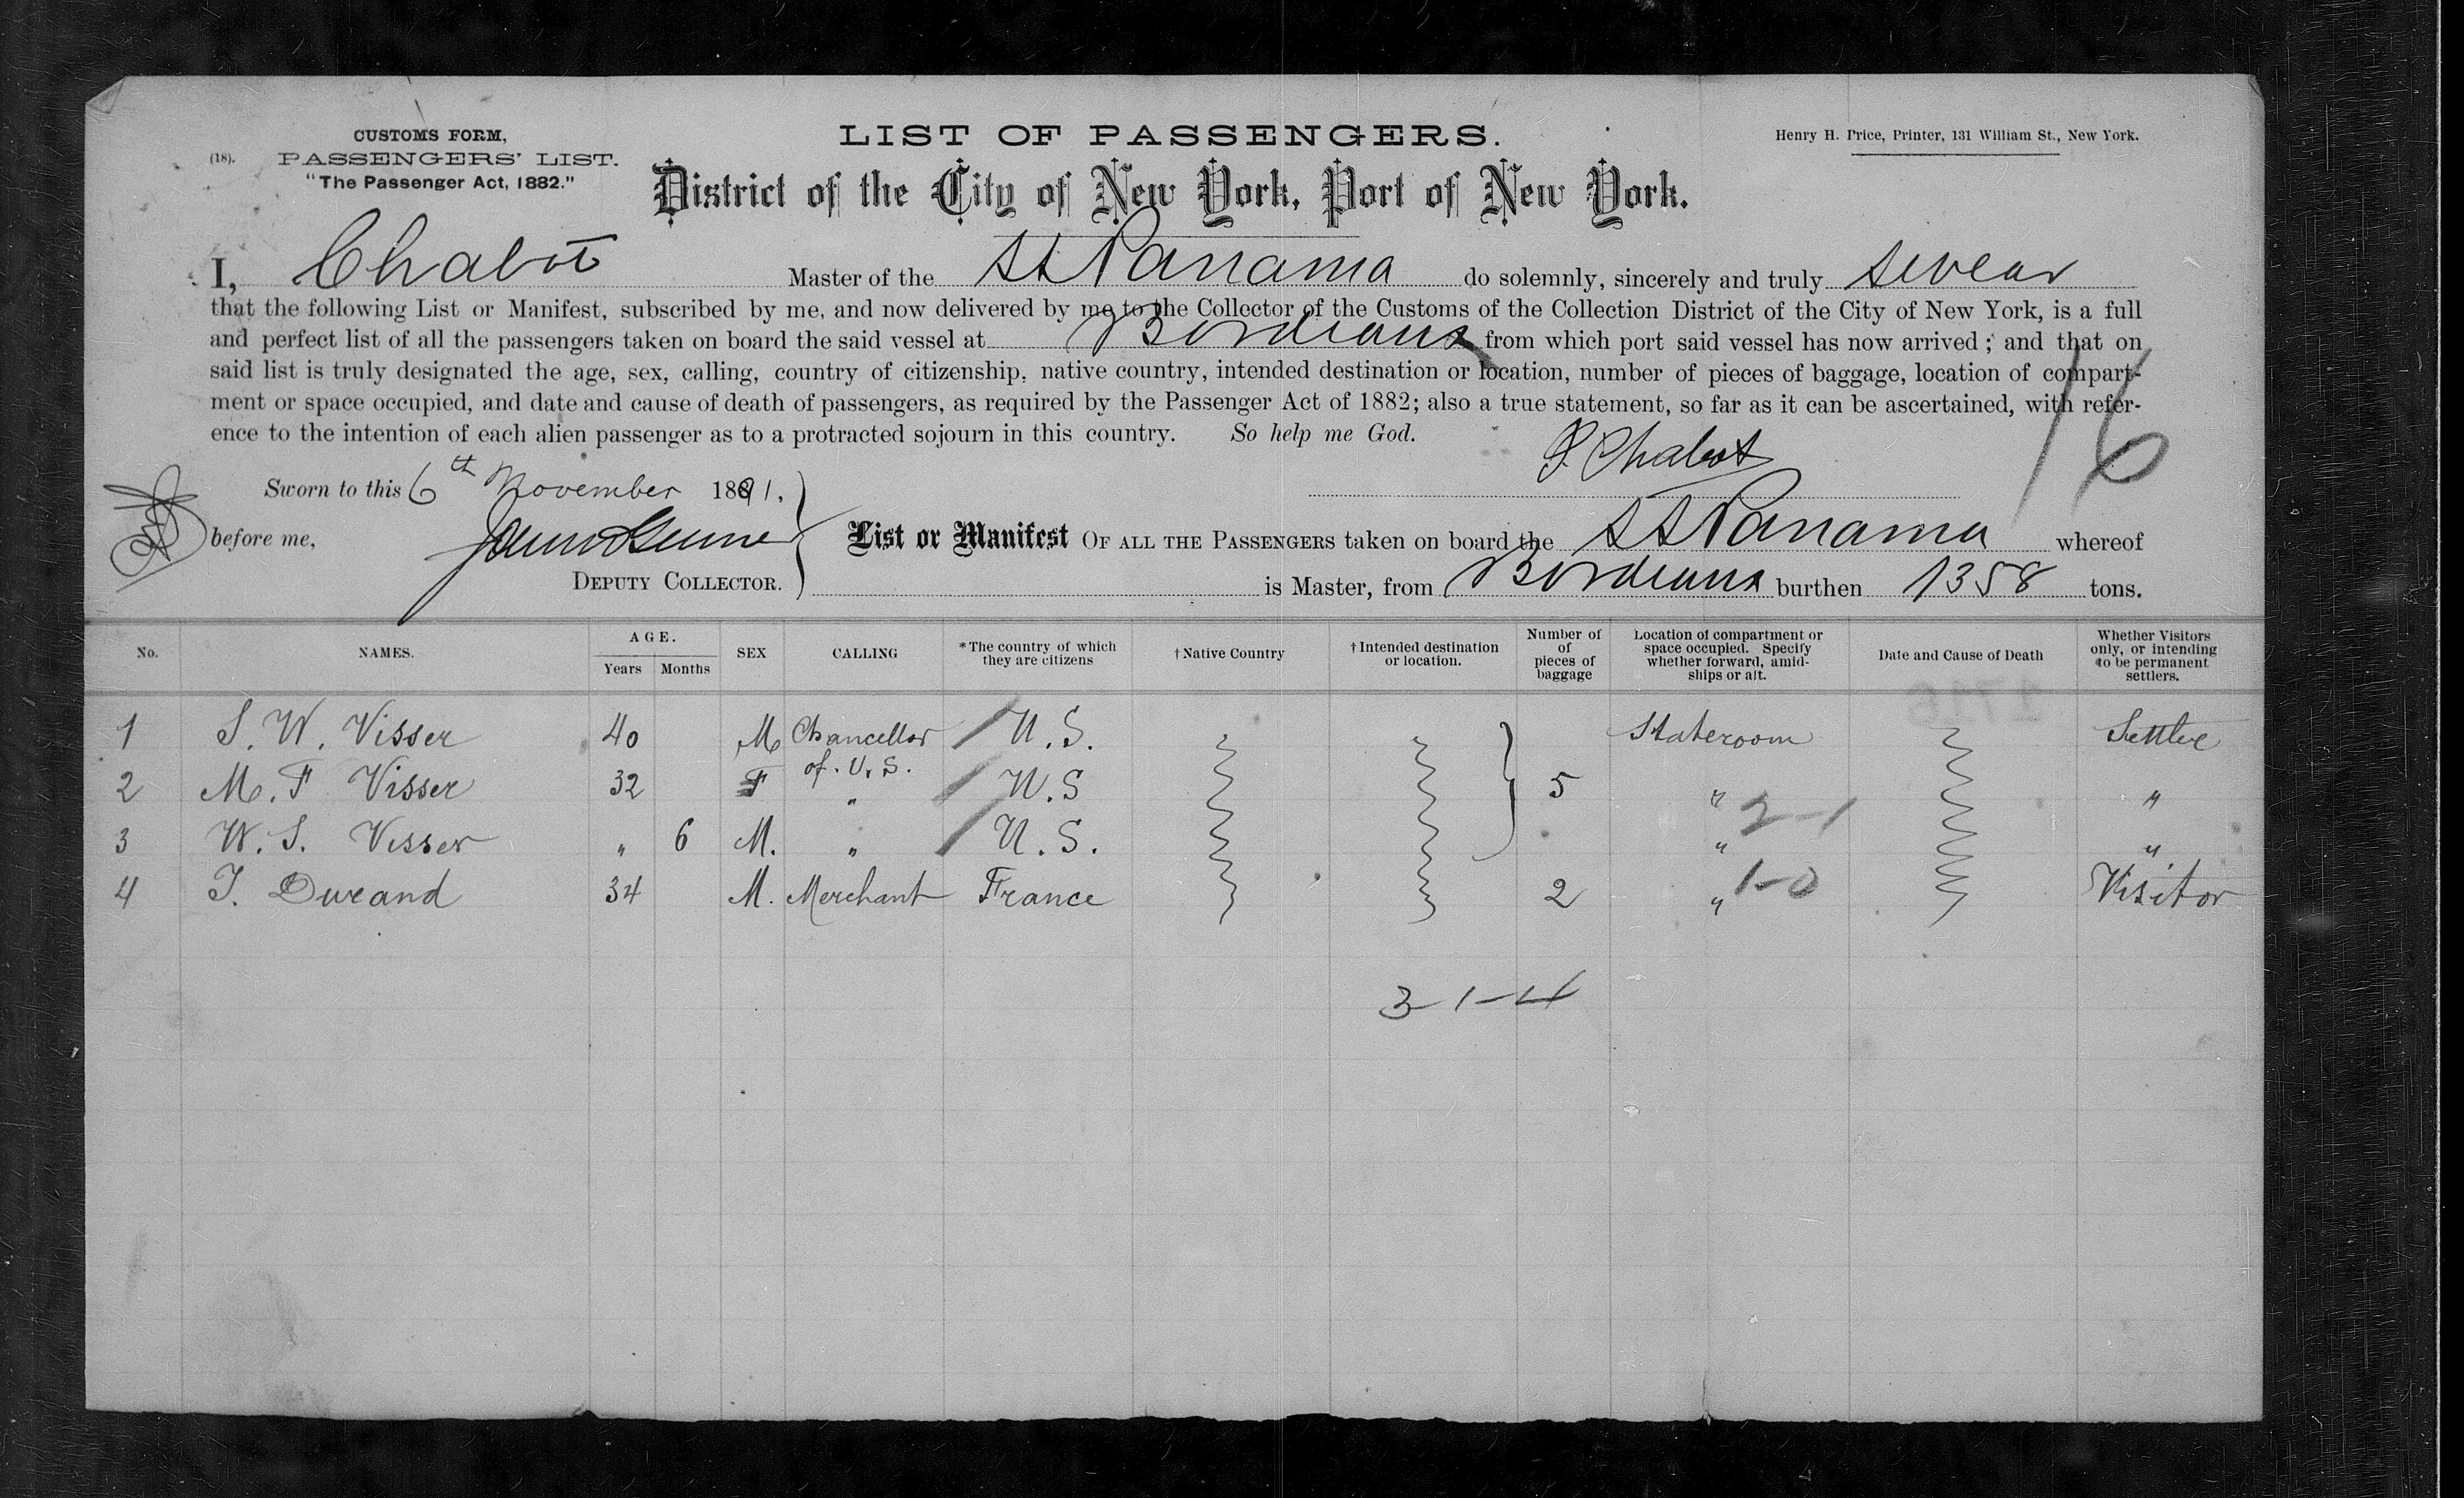 CUSTOMS FORM,
(18). PASSENGERS' LIST.
"The Passenger Act, 1882."
LIST OF PASSENGERS.
Henry H. Price, Printer, 131 William St., New York.
District of the City of New York, Port of New York.
I, Chabot Master of the SS Panama do solemnly, sincerely and truly swear
that the following List or Manifest, subscribed by me, and now delivered by me to the Collector of the Customs of the Collection District of the City of New York, is a full
and perfect list of all the passengers taken on board the said vessel at Bordeaux from which port said vessel has now arrived; and that on
said list is truly designated the age, sex, calling, country of citizenship, native country, intended destination or location, number of pieces of baggage, location of compart-
ment or space occupied, and date and cause of death of passengers, as required by the Passenger Act of 1882; also a true statement, so far as it can be ascertained, with refer-
ence to the intention of each alien passenger as to a protracted sojourn in this country. So help me God.
16
P. Chabot
Sworn to this 6th November 1891.
before me,
DEPUTY COLLECTOR.
List or Manifest OF ALL THE PASSENGERS taken on board the SS Panama whereof
is Master, from Bordeaux burthen 1358 tons.
No. NAMES. AGE. Years Months SEX CALLING *The country of which they are citizens †Native Country †Intended destination or location. Number of pieces of baggage Location of compartment or space occupied. Specify whether forward, amid-ships or aft. Date and Cause of Death Whether Visitors only, or intending to be permanent settlers.
1 S. W. Visser 40 M Chancellor of U.S. U.S. Stateroom Settler
2 M. F Visser 32 F " U.S 5 " "
2-1
3 W. S. Visser " 6 M. " U.S. " "
4 J. Durand 34 M. Merchant France 2 " 1-0 Visitor
3-1-4